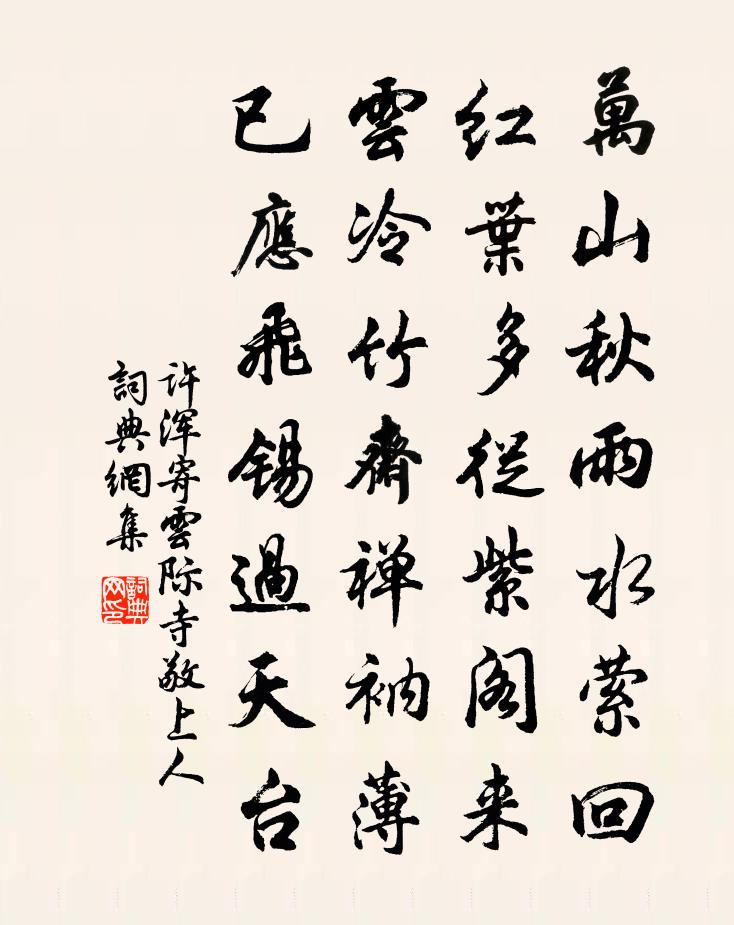 萬山秋雨水萦回
红葉多從紫阁来
雲冷竹齋禅衲薄
已應飛锡過天台
许浑寄雲际寺敬上人
詞典網集
詞典网印